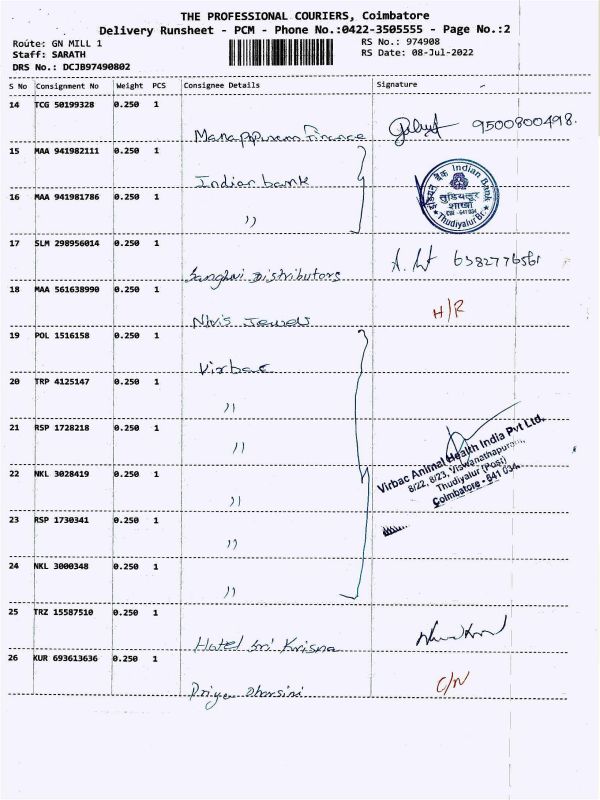 THE PROFESSIONAL COURIERS, Coimbatore
Delivery Runsheet - PCM - Phone No.:0422-3505555 - Page No.:2
Route: GN MILL 1
Staff: SARATH
DRS No.: DCJB97490802
RS No.: 974908
RS Date: 08-Jul-2022
S No Consignment No Weight PCS Consignee Details Signature
14 TCG 50199328 0.250 1
Manappuram Finance 9500800498.
15 MAA 941982111 0.250 1
Indian bank
16 MAA 941981786 0.250 1
"
इंडियन बैंक Indian Bank
शाखा
Thudiyalur Br.
17 SLM 298956014 0.250 1
Sanghvi Distributors 6382776561
18 MAA 561638990 0.250 1
Nivis Jewels H/R
19 POL 1516158 0.250 1
Virbac
20 TRP 4125147 0.250 1
"
21 RSP 1728218 0.250 1
"
22 NKL 3028419 0.250 1
"
Virbac Animal Health India Pvt Ltd.
8/22, 8/23, Viswanathapuram,
Thudiyalur (Post)
Coimbatore - 641 034.
23 RSP 1730341 0.250 1
"
24 NKL 3000348 0.250 1
"
25 TRZ 15587510 0.250 1
Hotel Sri Krisna
26 KUR 693613636 0.250 1
Priya Dharsini C/N